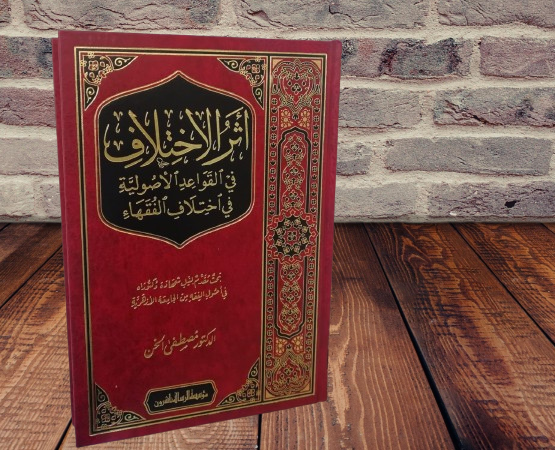 أثر الاختلاف
في القواعد الأصولية
في اختلاف الفقهاء
بحث مقدم لنيل شهادة دكتوراه
في أصول الفقه من الجامعة الأزهرية
الدكتور مصطفى الخن
مؤسسة الرسالة ناشرون